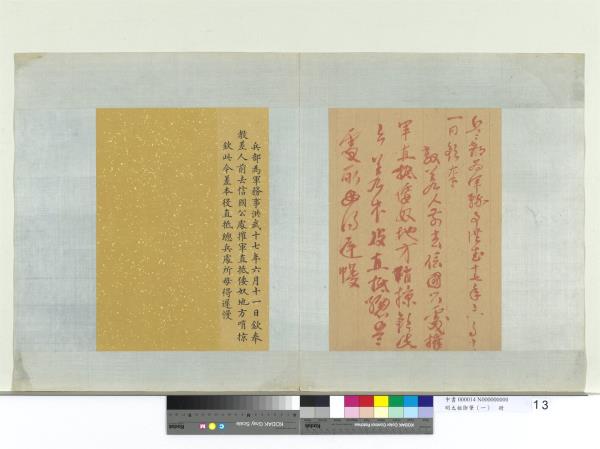 兵部為軍務事洪武十七年六月十
一日欽奉
敕差人前去信國公處摧
軍直抵倭奴地方哨掠欽此
今差本役直抵總兵
處所毋得遲慢
兵部為軍務事洪武十七年六月十一日欽奉
敕差人前去信國公處摧軍直抵倭奴地方哨掠
欽此今差本役直抵總兵處所毋得遲慢
KODAK Gray Scale
C Y M
Kodak
KODAK Color Control Patches
中書 000014 N000000000
明太祖御筆（一） 冊
13